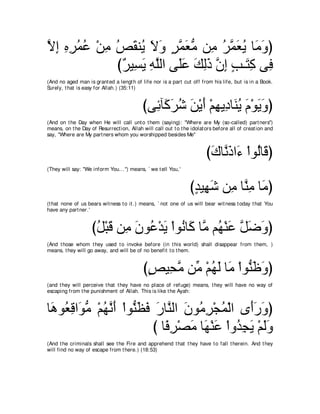 ﴿وَمَا يُعَمَّرُ مِن مُّعَمَّرٍ وَلاَ يُنقَصُ مِنْ عُمُرِهِ إِلاَّ
فِى كِتَـبٍ إِنَّ ذَلِكَ عَلَى اللَّهِ يَسِيرٌ﴾
(And no aged man is granted a length of life nor is a part cut off from his life, but is in a Book.
Surely, that is easy for Allah.) (35:11)
﴿وَيَوْمَ يُنَادِيهِمْ أَيْنَ شُرَكَآئِى﴾
(And on the Day when He will call unto them (saying): "Where are My (so-called) partners")
means, on the Day of Resurrection, Allah will call out to the idolators before all of creation and
say, "Where are My partners whom you worshipped besides Me"
﴿قَالُواْ ءَاذَنَّاكَ﴾
(They will say: "We inform You...") means, `we tell You.'
﴿مَا مِنَّا مِن شَهِيدٍ﴾
(that none of us bears witness to it.) means, `not one of us will bear witness today that You
have any partner.'
﴿وَضَلَّ عَنْهُم مَّا كَانُواْ يَدْعُونَ مِن قَبْلُ﴾
(And those whom they used to invoke before (in this world) shall disappear from them, )
means, they will go away, and will be of no benefit to them.
﴿وَظَنُّواْ مَا لَهُمْ مِّن مَّحِيصٍ﴾
(and they will perceive that they have no place of refuge) means, they will have no way of
escaping from the punishment of Allah. This is like the Ayah:
﴿وَرَأَى الْمُجْرِمُونَ النَّارَ فَظَنُّواْ أَنَّهُمْ مُّوَاقِعُوهَا
وَلَمْ يَجِدُواْ عَنْهَا مَصْرِفًا ﴾
(And the criminals shall see the Fire and apprehend that they have to fall therein. And they
will find no way of escape from there.) (18:53)